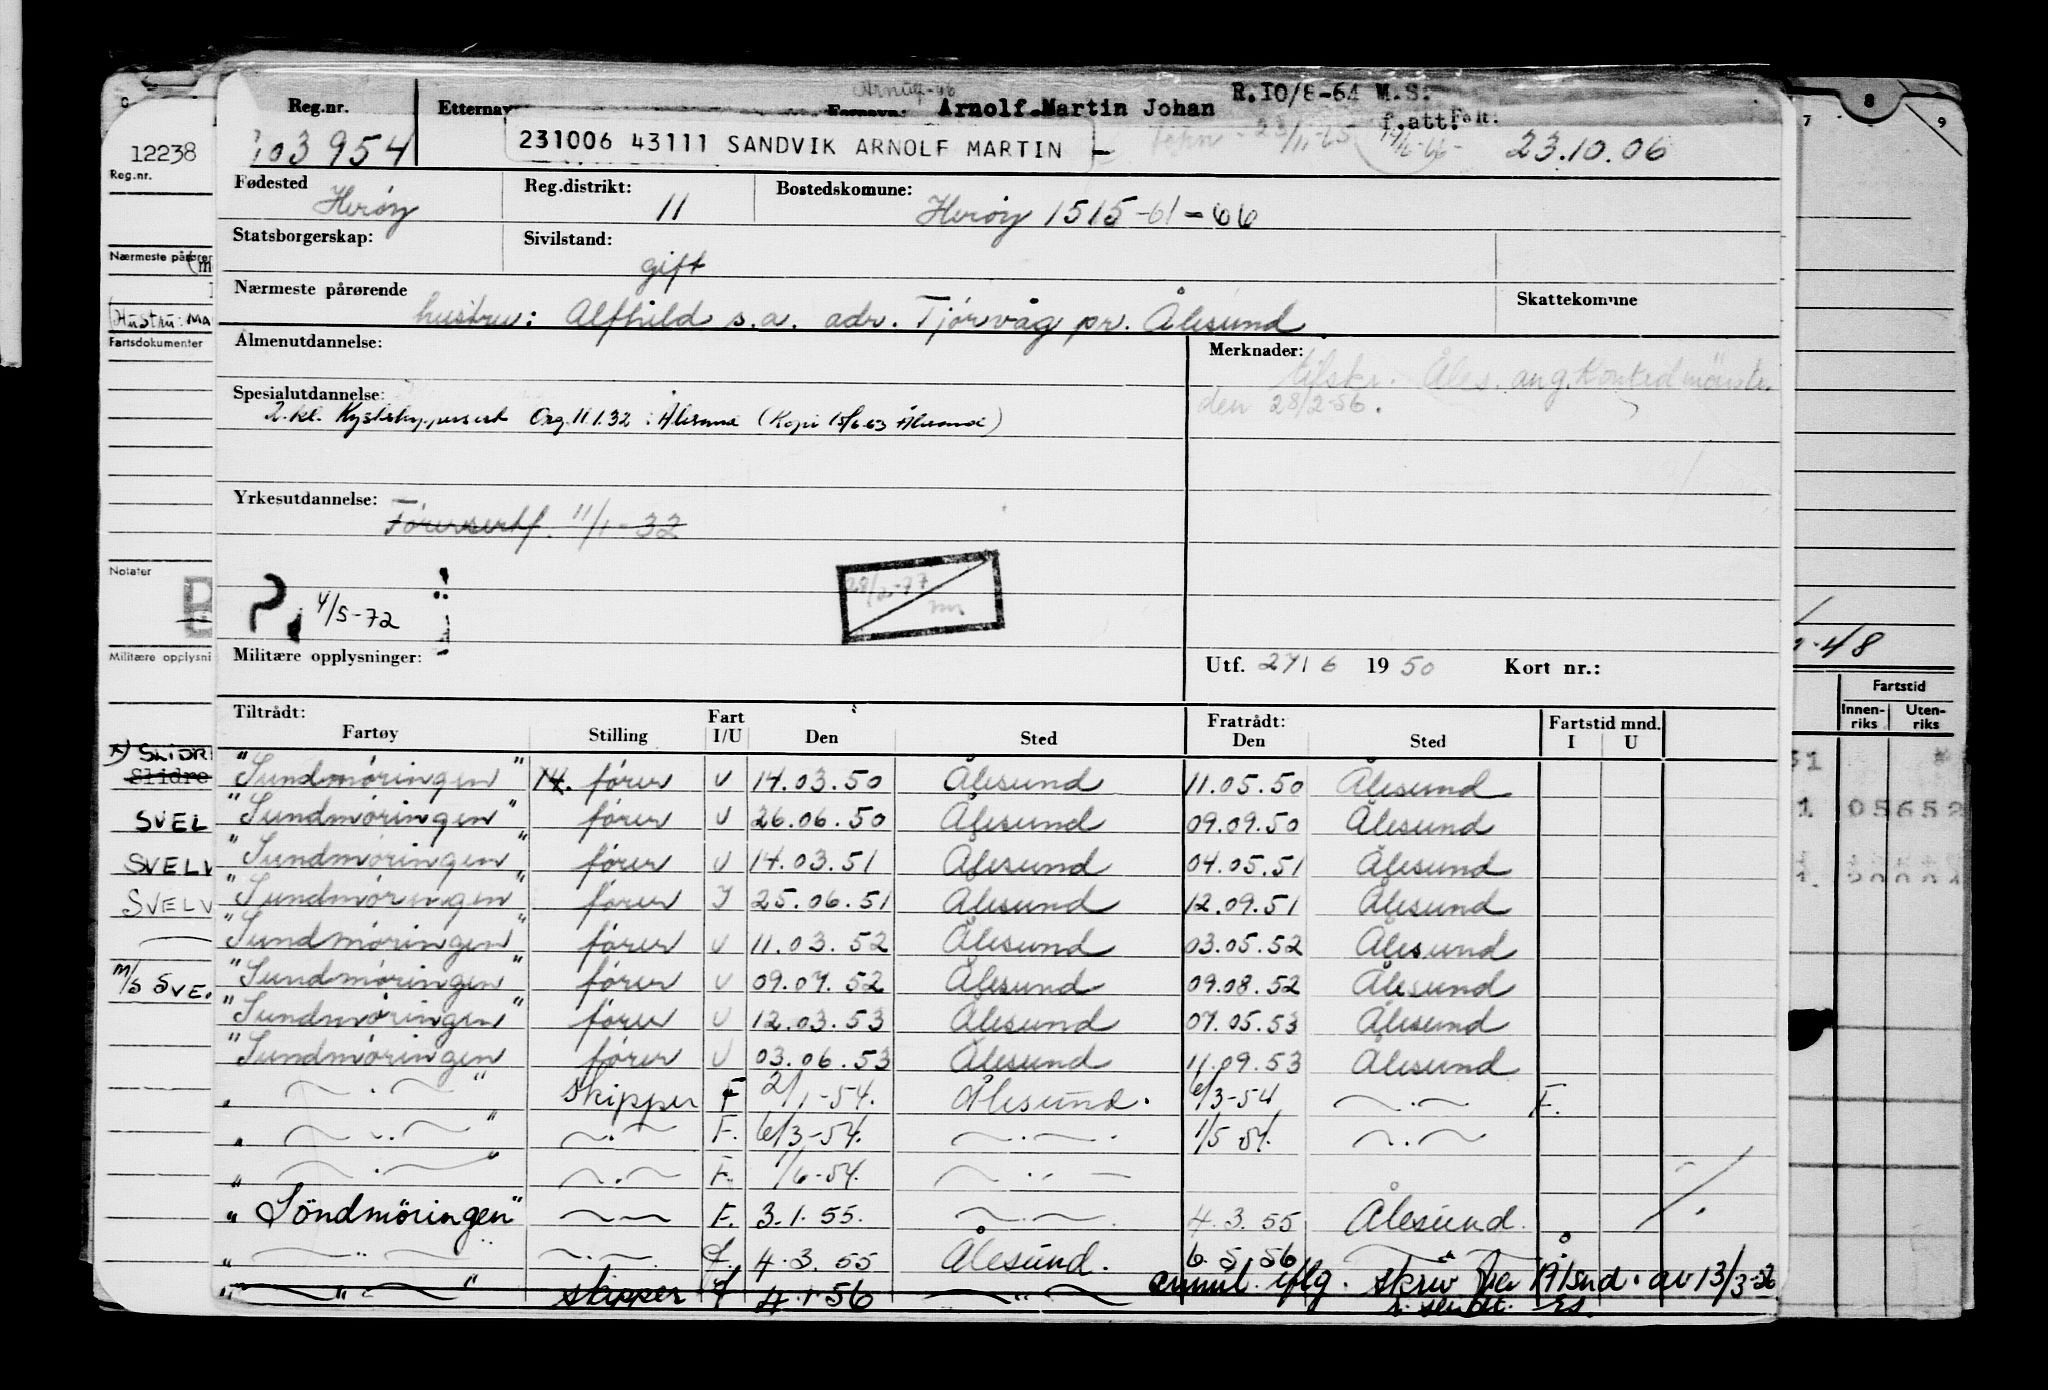 Reg.nr. Etternav Fornavn: Arnolf Martin Johan R.10/8-64 M.S.
f.att. Født:
103954 231006 43111 SANDVIK ARNOLF MARTIN 23.10.06
12238
Reg.nr.
Fødested Herøy Reg.distrikt: 11 Bostedskomune: Herøy 1515-61-66
Statsborgerskap: Sivilstand: gift
Nærmeste pårørende Skattekomune
hustru: Alfhild s.a. adr. Tjørvåg pr. Ålesund
Ålmenutdannelse: Merknader:
tilskr. Åles. ang.
den 28/2-56.
Spesialutdannelse:
2.kl. Org. 11.1.32 i Ålesund (Kopi 15/6.63 Ålesund)
Yrkesutdannelse:
Førersertf. 11/1-32
28/2-77
4/5-72
Militære opplysninger: Utf. 27/6 1950 Kort nr.:
Tiltrådt: Fart Fratrådt: Fartstid mnd.
Fartøy Stilling I/U Den Sted Den Sted I U
"Sundmøringen" fører U 14.03.50 Ålesund 11.05.50 Ålesund
"Sundmøringen" fører U 26.06.50 Ålesund 09.09.50 Ålesund
"Sundmøringen" fører U 14.03.51 Ålesund 04.05.51 Ålesund
"Sundmøringen" fører I 25.06.51 Ålesund 12.09.51 Ålesund
"Sundmøringen" fører U 11.03.52 Ålesund 03.05.52 Ålesund
"Sundmøringen" fører U 09.07.52 Ålesund 09.08.52 Ålesund
"Sundmøringen" fører U 12.03.53 Ålesund 07.05.53 Ålesund
"Sundmøringen fører U 03.06.53 Ålesund 11.09.53 Ålesund
" — . — " Skipper F 2/1-54. Ålesund. 6/3-54 — . — F.
" — . — " — . — F. 6/3-54. — . — . 1/5 54. — . —
" — . — " — . — F. 1/6-54. — . —
" Söndmöringen" — — F. 3.1.55. — . — . 4.3.55 Ålesund.
" — " — . — f. 4.3.55 Ålesund. 6.5.56 —
" — " — " skipper f 4.1.56 — " — annul. iflg. skriv fra Ålsnd. av 13/3-56
Nærmeste pårører
Hustru: MA
Fartsdokumenter
Notater
Militære opplysni
x) SLIDR
Slidre
SVEL
SVELV
SVELV
M/S SVE
8
7 9
-48
Fartstid
Innen-riks Uten-riks
31
1. 05652